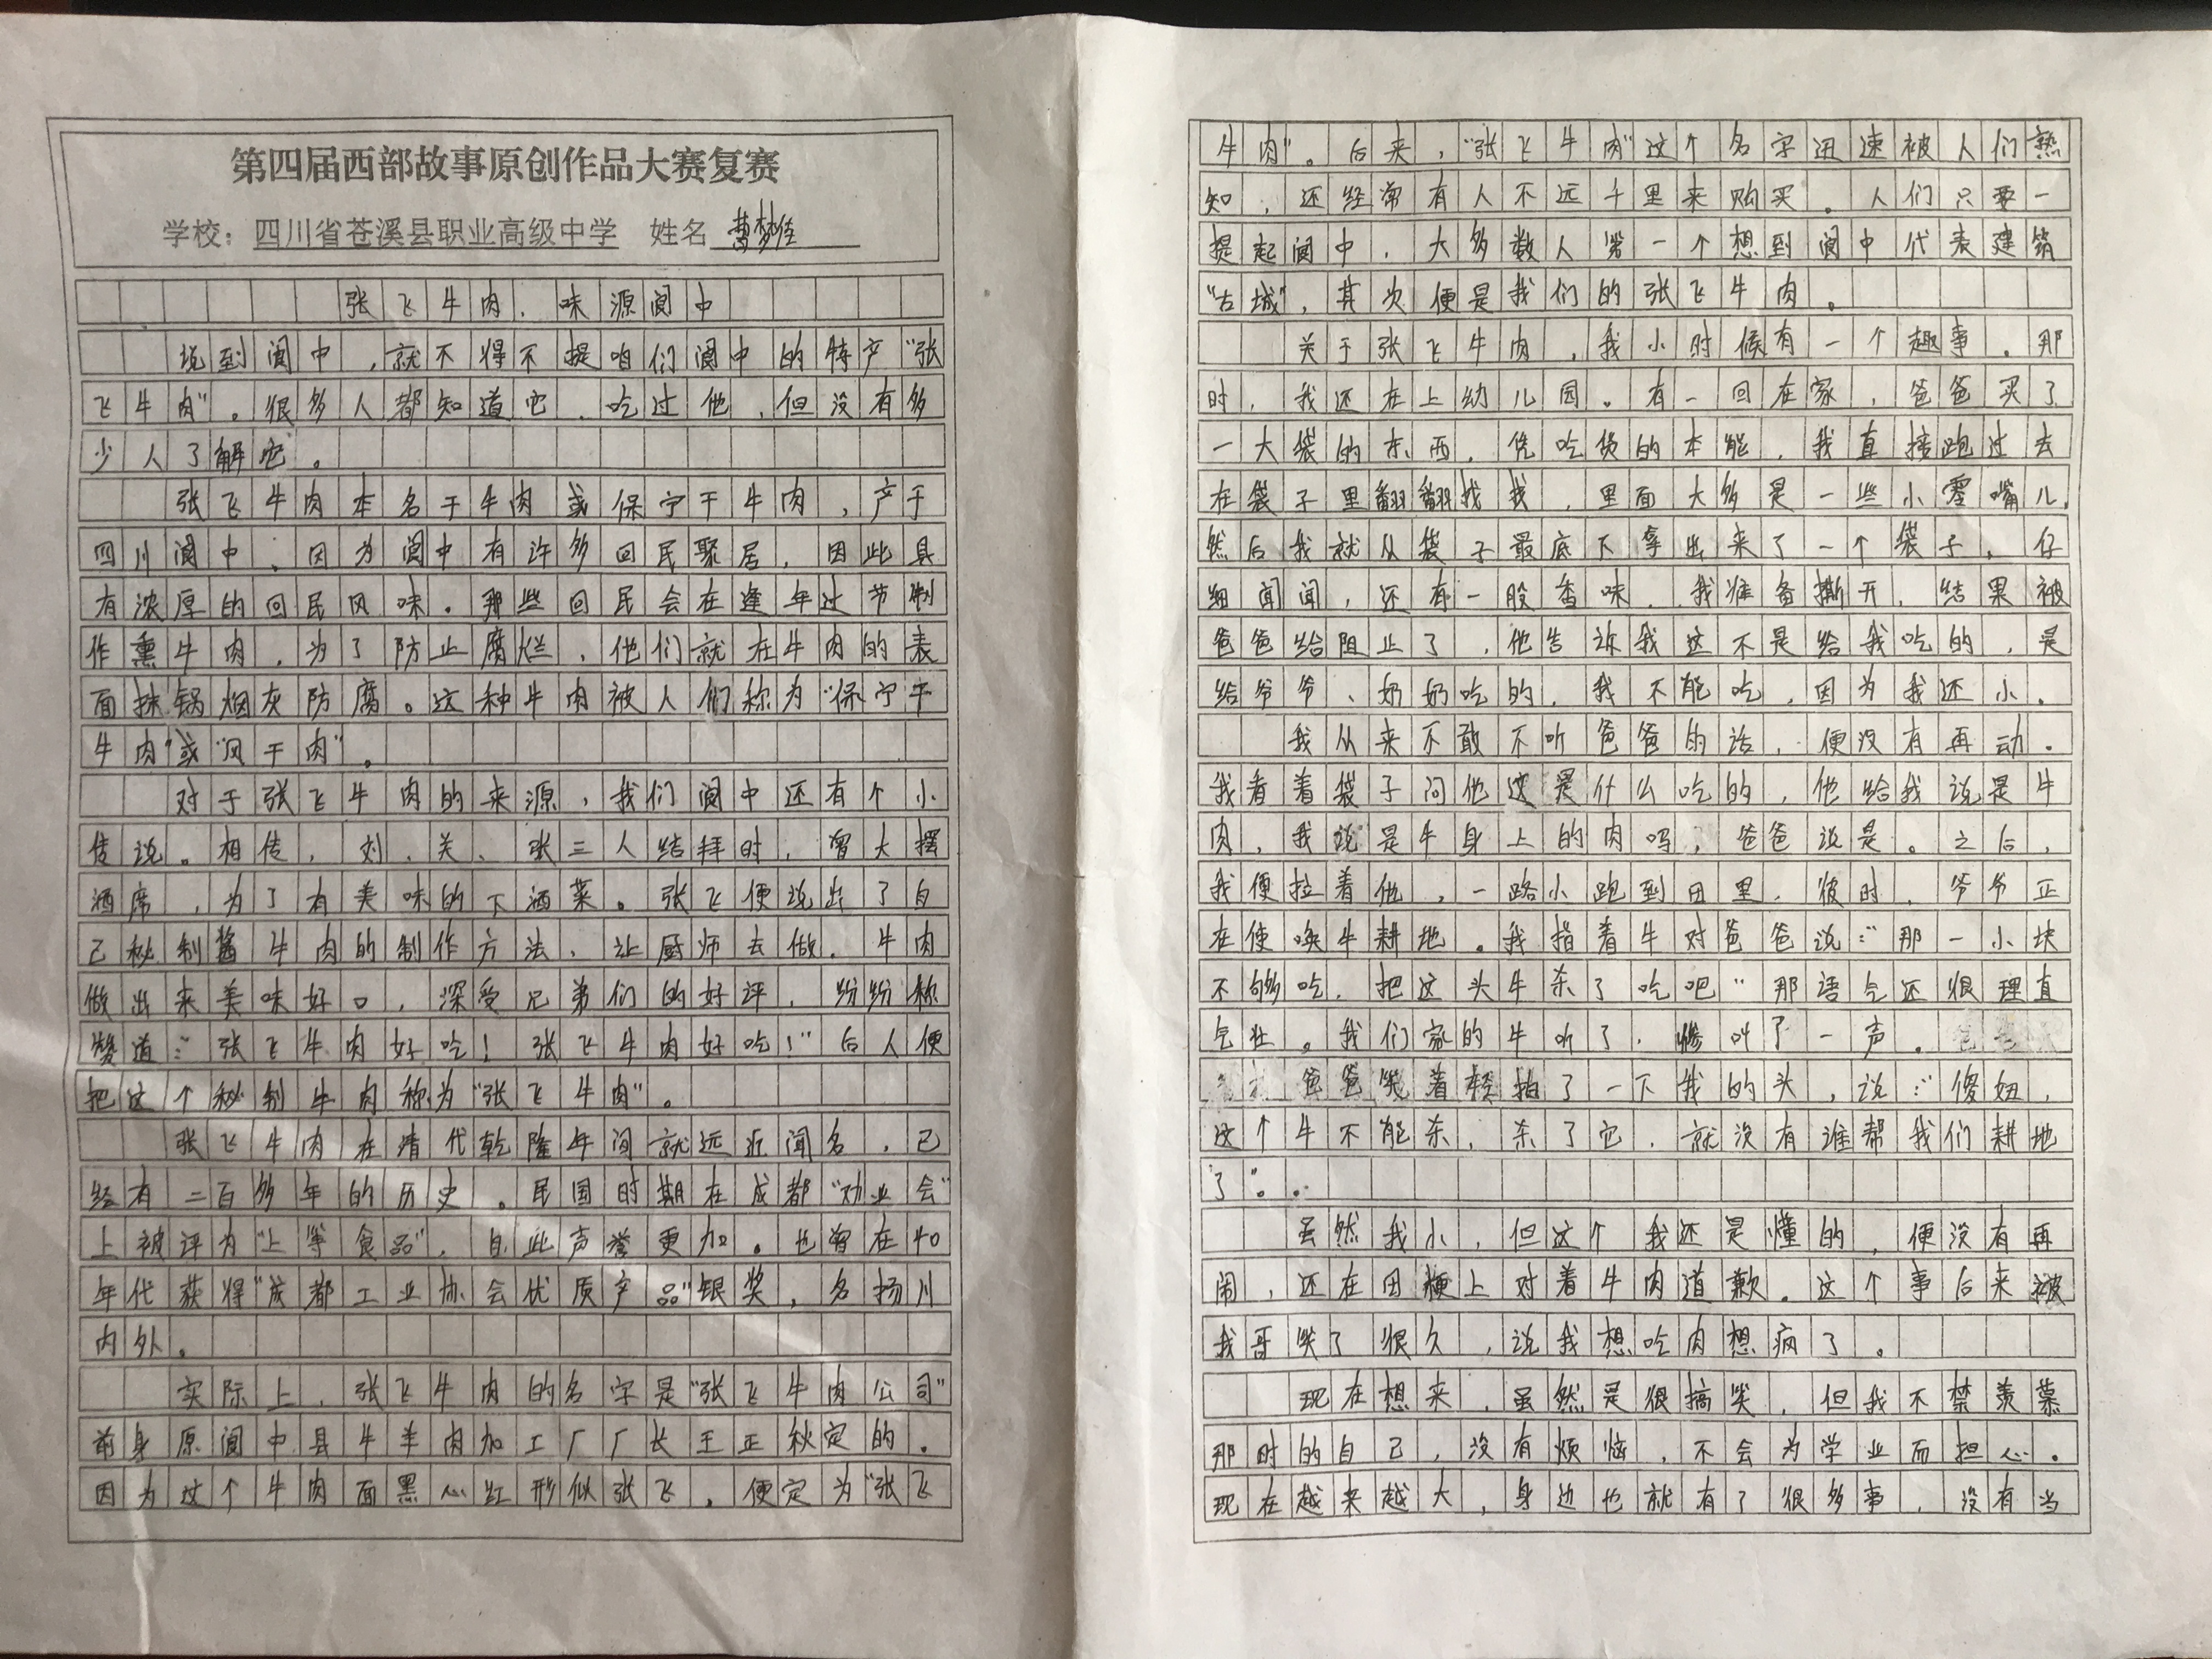 第四届西部故事原创作品大赛复赛
学校：四川省苍溪县职业高级中学 姓名 梦佳
张飞牛肉，味源阆中
说到阆中，就不得不提咱们阆中的特产“张
飞牛肉”。很多人都知道它，吃过他，但没有多
少人了解它。
张飞牛肉本名干牛肉或保宁干牛肉，产于
四川阆中，因为阆中有许多回民聚居，因此具
有浓厚的回民风味。那些回民会在逢年过节制
作熏牛肉，为了防止腐烂，他们就在牛肉的表
面抹锅烟灰防腐。这种牛肉被人们称为“保宁干
牛肉”或“风干肉”。
对于张飞牛肉的来源，我们阆中还有个小
传说。相传，刘、关、张三人结拜时，曾大摆
酒席，为了有美味的下酒菜。张飞便说出了自
己秘制酱牛肉的制作方法，让厨师去做。牛肉
做出来美味好口，深受兄弟们的好评，纷纷称
赞道：“张飞牛肉好吃！张飞牛肉好吃！”后人便
把这个秘制牛肉称为“张飞牛肉”。
张飞牛肉在清代乾隆年间就远近闻名，已
经有二百多年的历史。民国时期在成都“劝业会”
上被评为“上等食品”，自此声誉更加。也曾在40
年代获得“成都工业协会优质产品”银奖，名扬川
内外。
实际上，张飞牛肉的名字是“张飞牛肉公司”
前身原阆中县牛羊肉加工厂厂长王正秋定的。
因为这个牛肉面黑心红形似张飞，便定为“张飞
牛肉”。后来，“张飞牛肉”这个名字迅速被人们熟
知，还经常有人不远千里来购买。人们只要一
提起阆中，大多数人第一个想到阆中代表建筑
“古城”，其次便是我们的张飞牛肉。
关于张飞牛肉，我小时候有一个趣事。那
时，我还在上幼儿园。有一回在家，爸爸买了
一大袋的东西，凭吃货的本能，我直接跑过去
在袋子里翻翻找找，里面大多是一些小零嘴儿。
然后我就从袋子最底下拿出来了一个袋子，仔
细闻闻，还有一股香味，我准备撕开，结果被
爸爸给阻止了，他告诉我这不是给我吃的，是
给爷爷、奶奶吃的，我不能吃，因为我还小。
我从来不敢不听爸爸的话，便没有再动。
我看着袋子问他这是什么吃的，他给我说是牛
肉，我说是牛身上的肉吗，爸爸说是。之后，
我便拉着他，一路小跑到田里，彼时，爷爷正
在使唤牛耕地。我指着牛对爸爸说：“那一小块
不够吃，把这头牛杀了吃吧”那语气还很理直
气壮。我们家的牛听了，惨叫了一声。
爸爸笑着轻拍了一下我的头，说：“傻妞，
这个牛不能杀，杀了它，就没有谁帮我们耕地
了”。
虽然我小，但这个我还是懂的，便没有再
闹，还在田梗上对着牛肉道歉。这个事后来被
我哥笑了很久，说我想吃肉想疯了。
现在想来，虽然是很搞笑，但我不禁羡慕
那时的自己，没有烦恼，不会为学业而担心。
现在越来越大，身边也就有了很多事，没有当